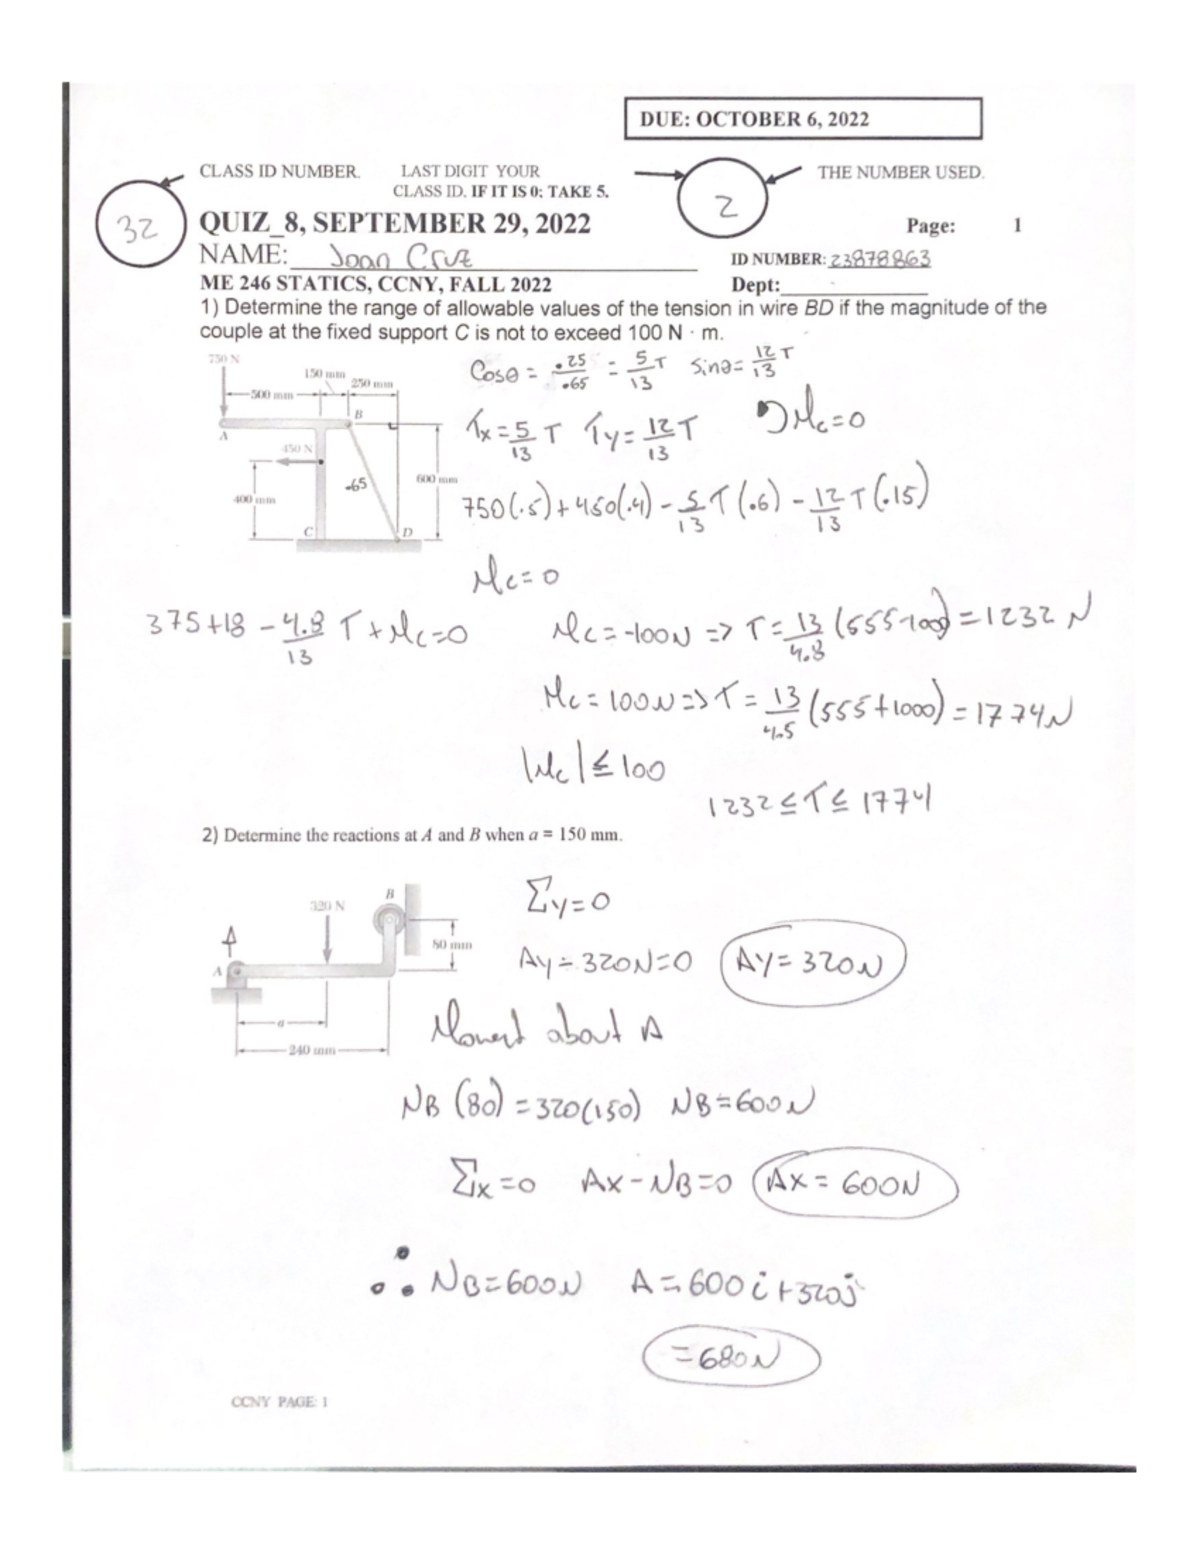 DUE: OCTOBER 6, 2022
CLASS ID NUMBER. LAST DIGIT YOUR THE NUMBER USED.
CLASS ID. IF IT IS 0; TAKE 5.
32
2
QUIZ_8, SEPTEMBER 29, 2022 Page: 1
NAME: Joan Cruz ID NUMBER: 23878863
ME 246 STATICS, CCNY, FALL 2022 Dept:
1) Determine the range of allowable values of the tension in wire BD if the magnitude of the
couple at the fixed support C is not to exceed 100 N · m.
750 N
150 mm
250 mm
500 mm
B
A
450 N
.65
600 mm
400 mm
C
D
Cosθ = .25/.65 = 5/13 T Sinθ = 12/13 T
Tx = 5/13 T Ty = 12/13 T Mc=0
750(.5)+450(.4) - 5/13 T (.6) - 12/13 T (.15)
Mc=0
375+18 - 4.8/13 T + Mc=0
Mc = -100N => T = 13/4.8 (555-100) = 1232 N
Mc = 100N => T = 13/4.5 (555+1000) = 1774N
|Mc| ≤ 100
1232 ≤ T ≤ 1774
2) Determine the reactions at A and B when a = 150 mm.
B
320 N
80 mm
A
A
a
240 mm
Σy=0
Ay - 320N=0 Ay= 320N
Moment about A
NB (80) = 320(150) NB=600N
Σx=0 Ax-NB=0 Ax= 600N
∴ NB=600N A=600i+320j
=680N
CCNY PAGE: 1